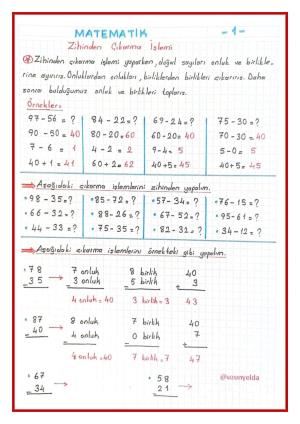 MATEMATİK -1-
Zihinden Çıkarma İşlemi
Zihinden çıkarma işlemi yaparken, doğal sayıları onluk ve birlikle-
rine ayırırız. Onluklardan onlukları, birliklerden birlikleri çıkarırız. Daha
sonra bulduğumuz onluk ve birlikleri toplarız.
Örnekler:
97-56=? 84-22=? 69-24=? 75-30=?
90-50=40 80-20=60 60-20=40 70-30=40
7-6=1 4-2=2 9-4=5 5-0=5
40+1=41 60+2=62 40+5=45 40+5=45
Aşağıdaki çıkarma işlemlerini zihinden yapalım.
•98-35=? •85-72=? •57-34=? •76-15=?
•66-32=? •88-26=? •67-52=? •95-61=?
•44-33=? •75-35=? •82-31=? •34-12=?
Aşağıdaki çıkarma işlemlerini örnekteki gibi yapalım.
•78 7 onluk 8 birlik 40
35 3 onluk 5 birlik + 3
4 onluk=40 3 birlik=3 43
•87 8 onluk 7 birlik 40
40 4 onluk 0 birlik 7 +
4 onluk=40 7 birlik=7 47
•67 •58
34 21
@sosinyelda